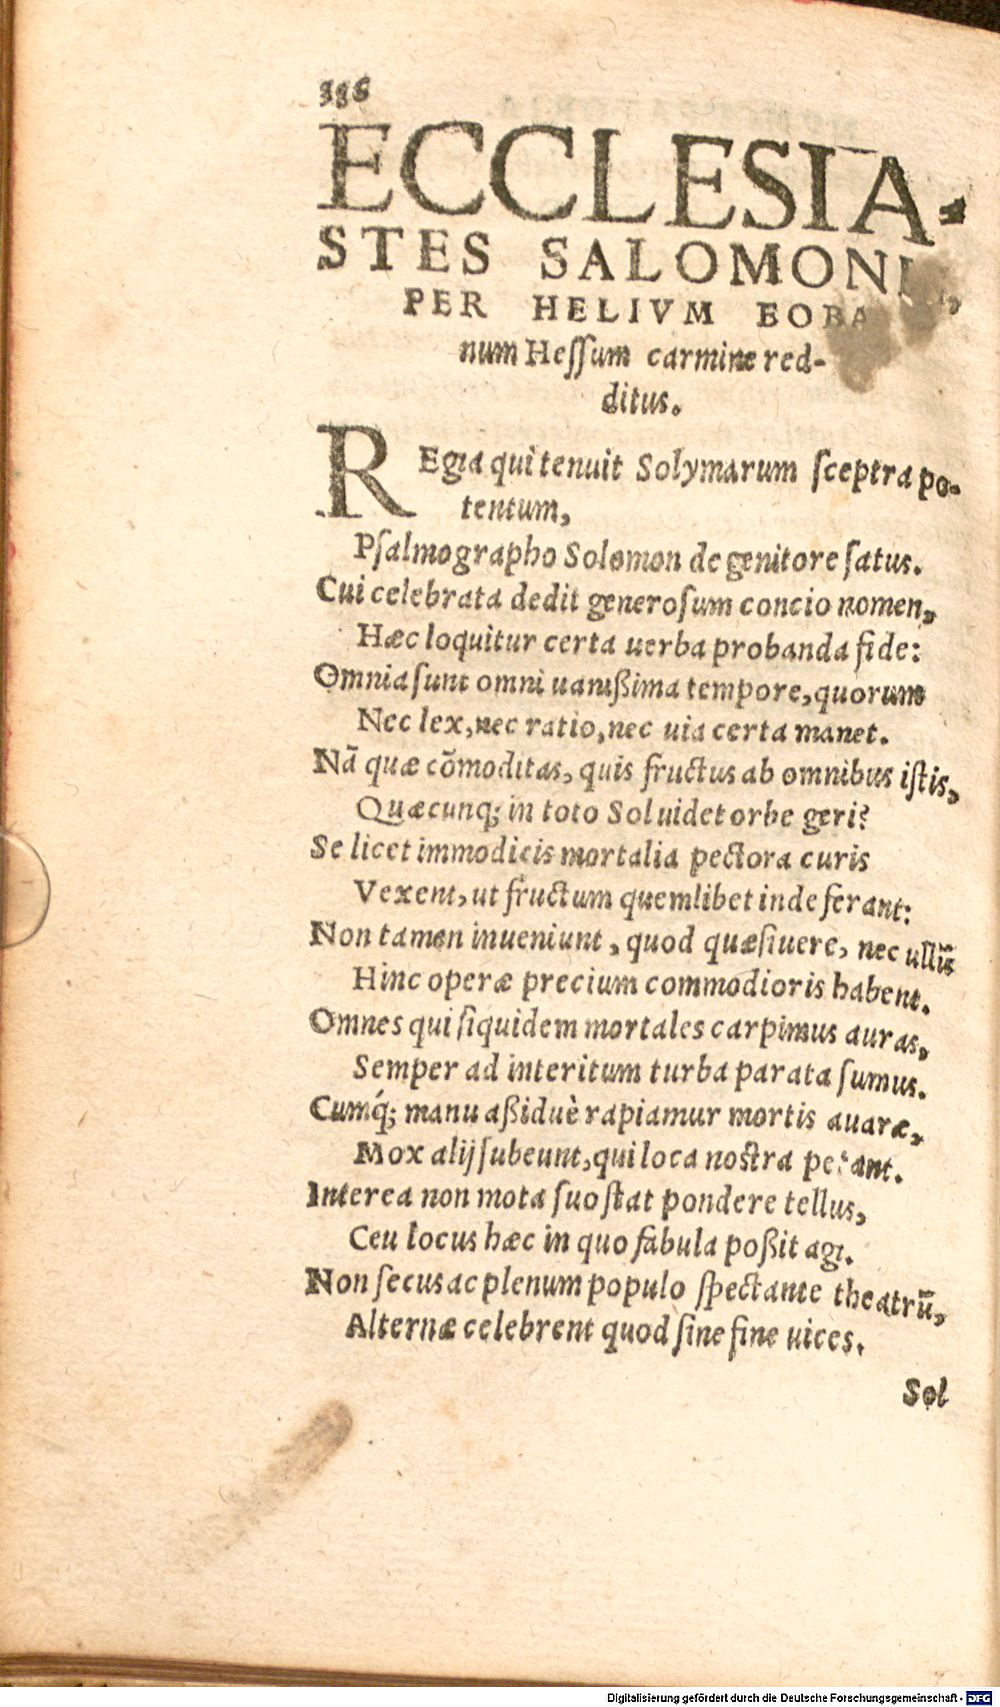 336
ECCLESIA-
STES SALOMONIS,
PER HELIVM EOBA
num Hessum carmine red-
ditus.
REgia qui tenuit Solymarum sceptra po-
tentum,
Psalmographo Solomon de genitore satus.
Cui celebrata dedit generosum concio nomen,
Hæc loquitur certa uerba probanda fide:
Omnia sunt omni uanißima tempore, quorum
Nec lex, nec ratio, nec uia certa manet.
Nã quæ cõmoditas, quis fructus ab omnibus istis,
Quæcunq; in toto Sol uidet orbe geri?
Se licet immodicis mortalia pectora curis
Vexent, ut fructum quemlibet inde ferant:
Non tamen inueniunt, quod quæsiuere, nec ullũ
Hinc operæ precium commodioris habent.
Omnes qui siquidem mortales carpimus auras,
Semper ad interitum turba parata sumus.
Cumq́; manu aßiduè rapiamur mortis auaræ,
Mox alij subeunt, qui loca nostra petant.
Interea non mota suo stat pondere tellus,
Ceu locus hæc in quo fabula poßit agi.
Non secus ac plenum populo spectante theatrũ,
Alternæ celebrent quod sine fine uices.
Sol
Digitalisierung gefördert durch die Deutsche Forschungsgemeinschaft - DFG